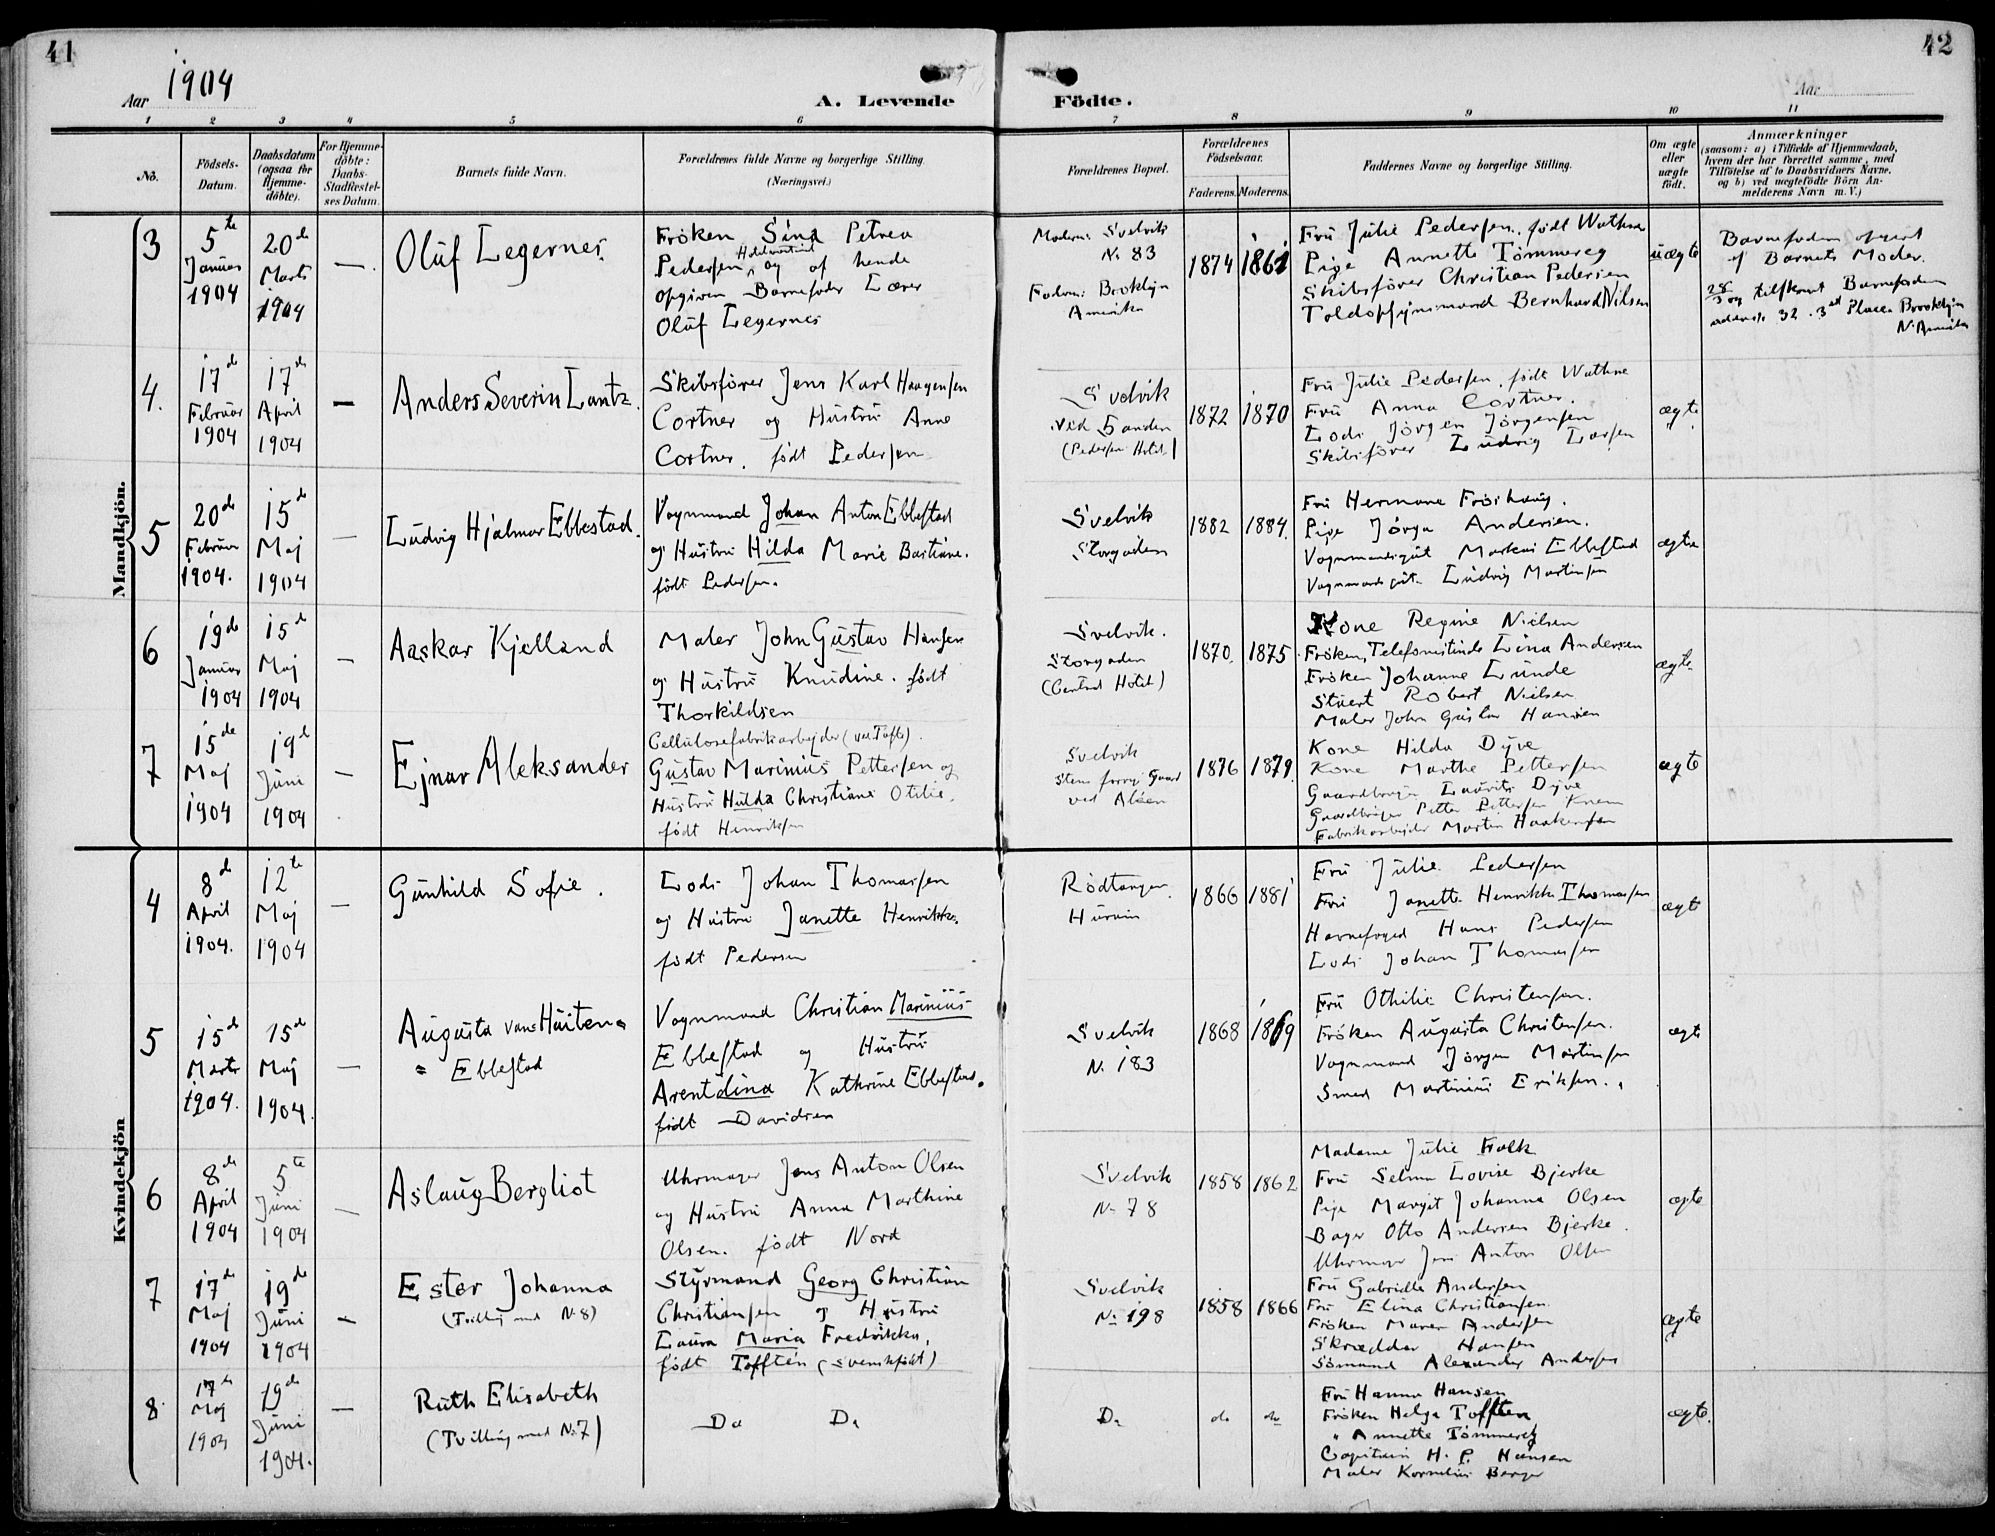 41
42
Aar 1904
A. Levende
Födte.
Aar
1 2 3 4 5 6 7 8 9 10 11
No.
Födsels-Datum.
Daabsdatum (ogsaa for Hjemme-döbte).
For Hjemme-döbte: Daabs-Stadfæstel-ses Datum.
Barnets fulde Navn.
Forældrenes fulde Navne og borgerlige Stilling.
(Næringsvei.)
Forældrenes Bopæl.
Forældrenes Födselsaar.
Faderens.
Moderens.
Faddernes Navne og borgerlige Stilling.
Om ægte eller uægte födt.
Anmærkninger
(saasom: a) i Tilfælde af Hjemmedaab,
hvem der har forrettet samme, med
Tilföielse af to Daabsvidners Navne,
og b) ved uægtefödte Börn An-
melderens Navn m. V.)
Mandkjön.
3
5te Januar 1904
20de Marts 1904
—
Oluf Legernes
Fröken Sina Petrea
Pedersen, og af hende
opgiven Barnefader Lærer
Oluf Legernes
Moderen: Svelvik
No 83
Faderen: Brooklyn
Amerika
1874
1861
Fru Julie Pedersen, född Wathne
Pige Annette Tömmereg
Skibsförer Christian Pedersen
Toldopsynsmand Bernhard Nilsen
uægte
Barnefaderen opgivet
af Barnets Moder.
32 . 3rd Place Brooklyn
N. Amerika
4.
17de Februar 1904
17de April 1904
—
Anders Severin Lantz
Skibsförer Jens Karl Haagensen
Cortner og Hustru Anne
Cortner. födt Pedersen
Svelvik
ved Stranden
(Pedersen Hotel)
1872
1870
Fru Julie Pedersen, födt Wathne
Fru Anna Cortner.
Lods Jörgen Jörgensen
Skibsförer Ludvig Larsen
ægte
5
20de Februar 1904.
15de Maj 1904
—
Ludvig Hjalmar Ebbestad.
Vognmand Johan Anton Ebbestad
og Hustru Hilda Marie Bastiane.
födt Pedersen.
Svelvik
Storgaden
1882
1884.
Fru Hermane Fröshaug.
Pige Jörga Andersen.
Vognmandsgut Markus Ebbestad
Vognmandsgut Ludvig Martinsen
ægte
6
19de Januar 1904
15de Maj 1904
—
Aaskar Kjelland
Maler John Gustav Hansen
og Hustru Knudine. födt
Thorkildsen
Svelvik.
Storgaden
(Central Hotel)
1870.
1875
Kone Regine Nielsen
Fröken, Telefonistinde Lina Andersen
Fröken Johanne Lunde
Stuert Robert Nielsen
Maler John Gustav Hansen
ægte
7
15de Maj 1904
19de Juni 1904
—
Ejnar Aleksander
Cellulosefabrikarbejder (ved Tofte).
Gustav Marinius Pettersen og
Hustru Hulda Christiane Otilie.
födt Henriksen
Svelvik
Gaard
ved Aasen
1876
1879.
Kone Hilda Dyve
Kone Marthe Pettersen
Gaardbruger Lauritz Dyve
Gaardbruger Petter Pettersen Knem
Fabrikarbejder Martin Haakensen
ægte
Kvindekjön
4
8de April 1904.
12te Maj 1904
—
Gunhild Sofie.
Lods Johan Thomassen
og Hustru Janette Henrikke.
födt Pedersen
Rödtangen
Hurum
1866
1881
Fru Julie Pedersen
Fru Janette Henrikke Thomassen
Havnefoged Hans Pedersen
Lods Johan Thomassen
ægte
5
15de Marts 1904.
15de Maj 1904.
—
Augusta van Huiten=
= Ebbestad
Vognmand Christian Marinius
Ebbestad og Hustru
Arentdina Kathrine Ebbestad.
födt Davidsen
Svelvik
No 183
1868
1869
Fru Othilie Christensen.
Fröken Augusta Christensen.
Vognmand Jörgen Martinsen
Smed Martinius Eriksen.
ægte
6
8de April 1904
5te Juni 1904
—
Aslaug Bergliot
Uhrmager Jens Anton Olsen
og Hustru Anna Marthine
Olsen. födt Nord
Svelvik
No 78
1858
1862
Madame Julie Falk
Fru Selma Lovise Bjerke
Pige Margit Johanne Olsen
Bager Otto Andersen Bjerke.
Uhrmager Jens Anton Olsen
ægte
7
17de Maj 1904
19de Juni 1904
—
Ester Johanna
(Tvilling med No 8)
Styrmand Georg Christian
Christiansen og Hustru
Laura Maria Fredrikka,
födt Tofftén (svenskfödt)
Svelvik
No 198
1858
1866
Fru Gabrielle Andersen
Fru Elina Christiansen.
Fröken Maren Andersen
Skrædder Hansen
Sömand Alexander Andersen
ægte
8
17de Maj 1904
19de Juni 1904.
—
Ruth Elisabeth
(Tvilling med No 7)
Do Do
Do
do
do
Fru Hanna Hansen
Fröken Helga Tofften
" Annette Tömmereg
Capitain H. P. Hansen
Maler Kornelius Berger
ægte.